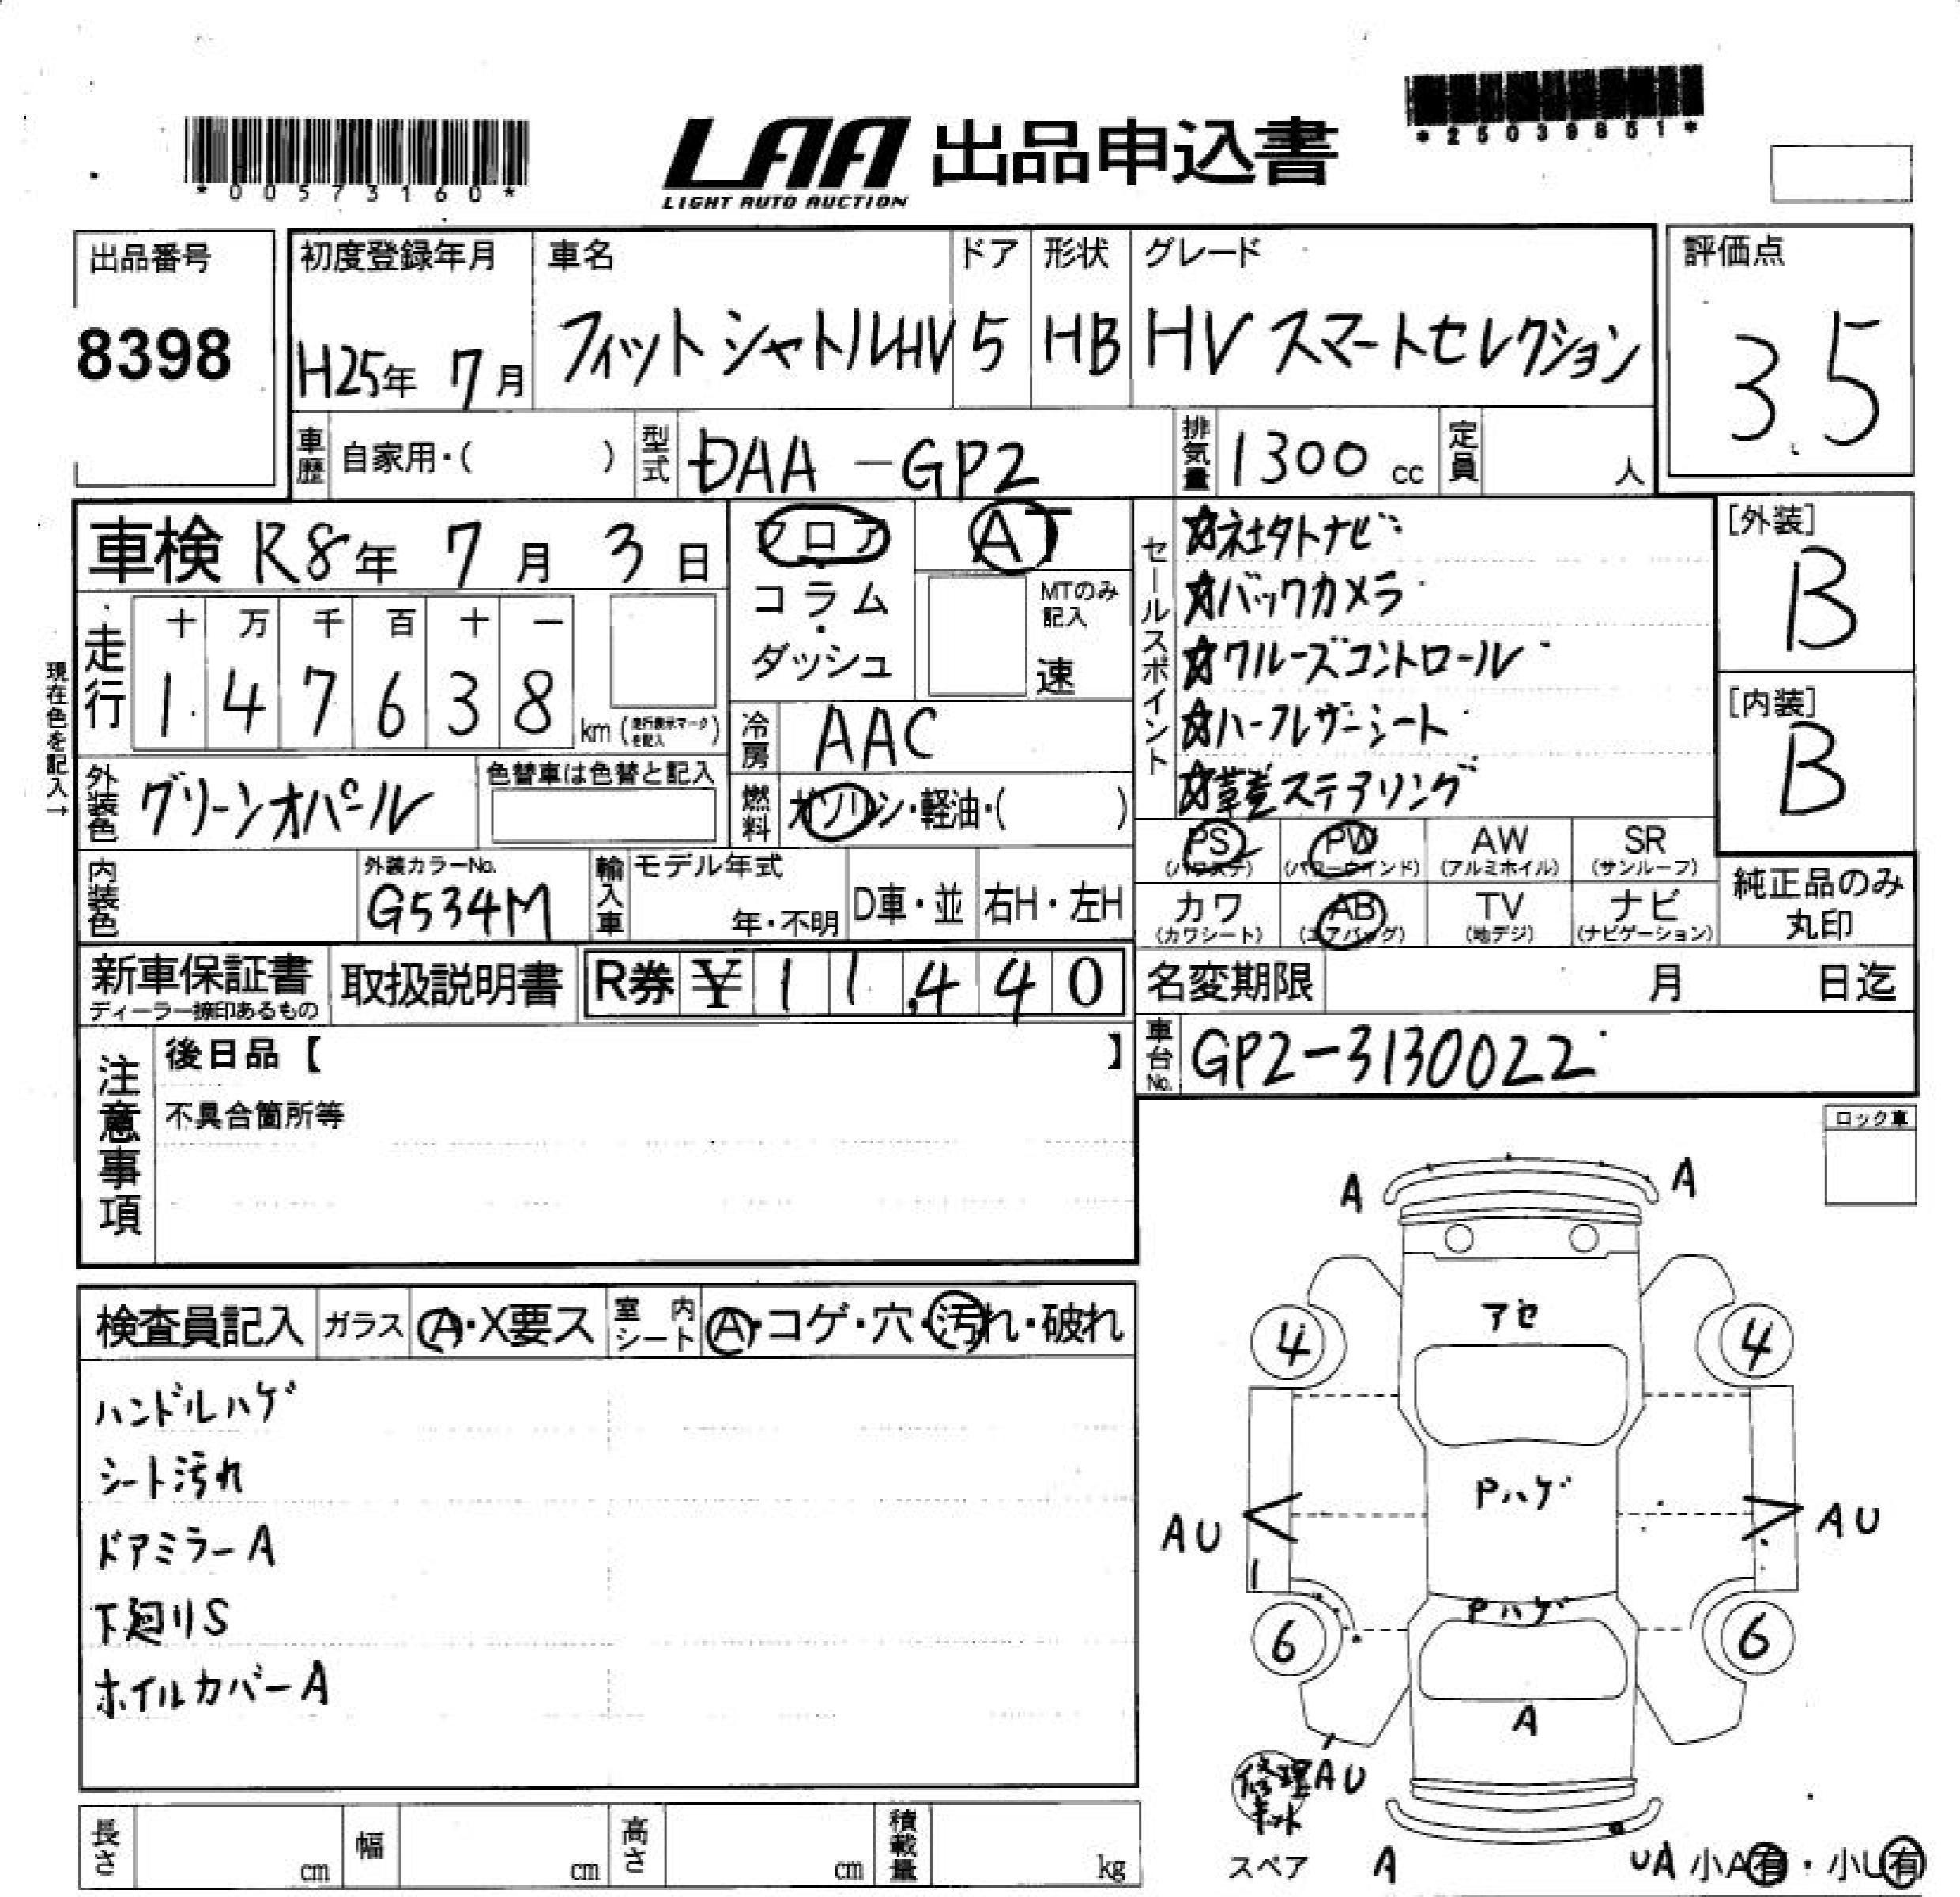 *00573160*
LAA 出品申込書
LIGHT AUTO AUCTION
*25039851*
出品番号
8398
初度登録年月
H25年 7月
車名
フィットシャトルHV
ドア
5
形状
HB
グレード
HV スマートセレクション
評価点
3.5
車歴 自家用・( )
型式 DAA-GP2
排気量 1300 cc
定員 人
車検 R8年 7月 3日
フロア・コラム・ダッシュ
AT
MTのみ記入
速
走行
十 万 千 百 十 一
1 4 7 6 3 8 km (走行表示マークを記入)
現在色を記入→
冷房 AAC
外装色 グリーンオパール
色替車は色替と記入
燃料 ガソリン・軽油・( )
内装色
外装カラーNo.
G534M
輸入車
モデル年式
年・不明
D車・並
右H・左H
セールスポイント
☆社外ナビ
☆バックカメラ
☆クルーズコントロール
☆ハーフレザーシート
☆革巻ステアリング
[外装]
B
[内装]
B
PS (パワステ)
PW (パワーウインド)
AW (アルミホイル)
SR (サンルーフ)
カワ (カワシート)
AB (エアバッグ)
TV (地デジ)
ナビ (ナビゲーション)
純正品のみ丸印
新車保証書
ディーラー捺印あるもの
取扱説明書
R券 ¥11,440
名変期限 月 日迄
車台No. GP2-3130022
注意事項
後日品【 】
不具合箇所等
ロック車
検査員記入
ガラス A・X要ス
室内シート A・コゲ・穴・汚れ・破れ
ハンドルハゲ
シート汚れ
ドアミラーA
下廻りS
ホイルカバーA
A
A
アセ
4
4
Pハゲ
AU
AU
Pハゲ
6
6
A
修理キット
AU
スペア
A
UA
小A有・小U有
長さ cm
幅 cm
高さ cm
積載量 kg